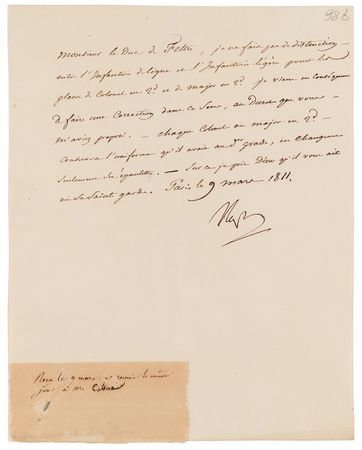 98 b
Monsieur le Duc de Feltre, je ne fais pas de distinction
entre l'Infanterie de ligne et l'Infanterie légère pour les
places de Colonel en 2d. et de major en 2d. je viens en conséquence
de faire une correction dans ce Sens, au decret que vous
m'avez proposé. — chaque Colonel ou major en 2d. —
conservera l'uniforme qu'il avait au 1er grade, en changeant
seulement ses épaulettes. — Sur ce je prie Dieu qu'il vous ait
en sa Sainte garde. Paris le 9 mars 1811.
Nap
Reçu le 9 mars et remis le même
jour à Mr.